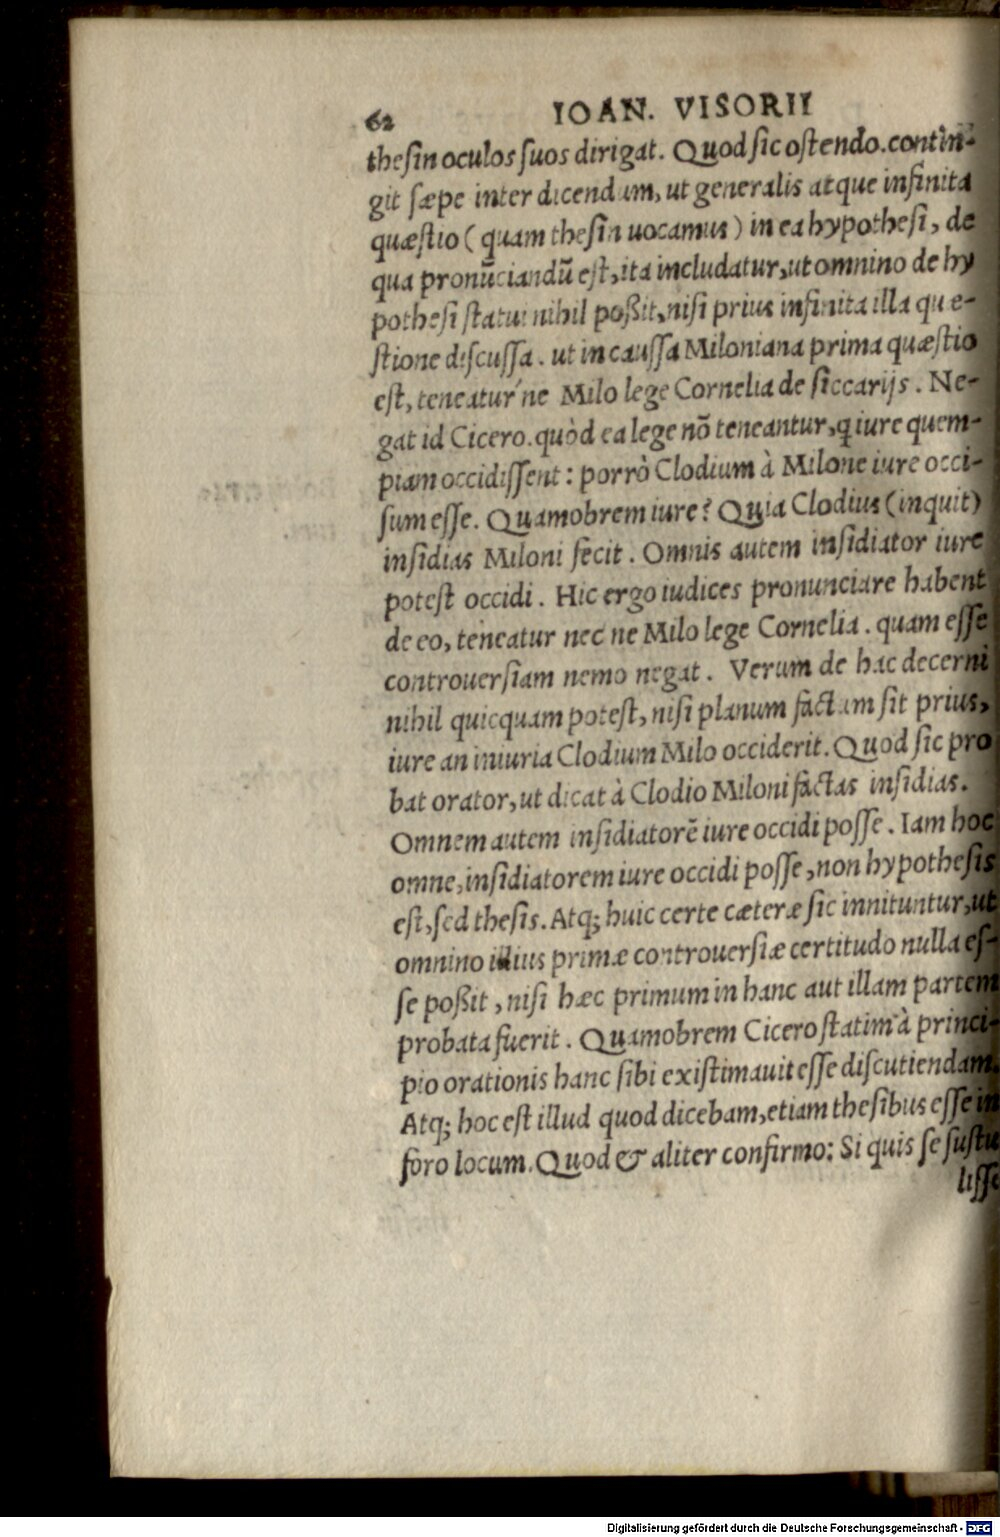 62 IOAN. VISORII
thesin oculos suos dirigat. Quod sic ostendo. contin-
git sæpe inter dicendum, ut generalis atque infinita
quæstio (quam thesin uocamus) in ea hypothesi, de
qua pronūciandū est, ita includatur, ut omnino de hy
pothesi statui nihil poßit, nisi prius infinita illa quæ-
stione discussa. ut in caussa Miloniana prima quæstio
est, teneatur ne Milo lege Cornelia de siccarijs. Ne-
gat id Cicero. quòd ea lege nō teneantur, q iure quem-
piam occidissent: porrò Clodium à Milone iure occi-
sum esse. Quamobrem iure? Quia Clodius (inquit)
insidias Miloni fecit. Omnis autem insidiator iure
potest occidi. Hic ergo iudices pronunciare habent
de eo, teneatur nec ne Milo lege Cornelia. quam esse
controuersiam nemo negat. Verum de hac decerni
nihil quicquam potest, nisi planum factum sit prius,
iure an iniuria Clodium Milo occiderit. Quod sic pro
bat orator, ut dicat à Clodio Miloni factas insidias.
Omnem autem insidiatorē iure occidi posse. Iam hoc
omne, insidiatorem iure occidi posse, non hypothesis
est, sed thesis. Atq; huic certe cæteræ sic innituntur, ut
omnino illius primæ controuersiæ certitudo nulla es-
se poßit, nisi hæc primum in hanc aut illam partem
probata fuerit. Quamobrem Cicero statim à princi-
pio orationis hanc sibi existimauit esse discutiendam.
Atq; hoc est illud quod dicebam, etiam thesibus esse in
foro locum. Quod & aliter confirmo: Si quis se sustu
lisse
Digitalisierung gefördert durch die Deutsche Forschungsgemeinschaft - DFG